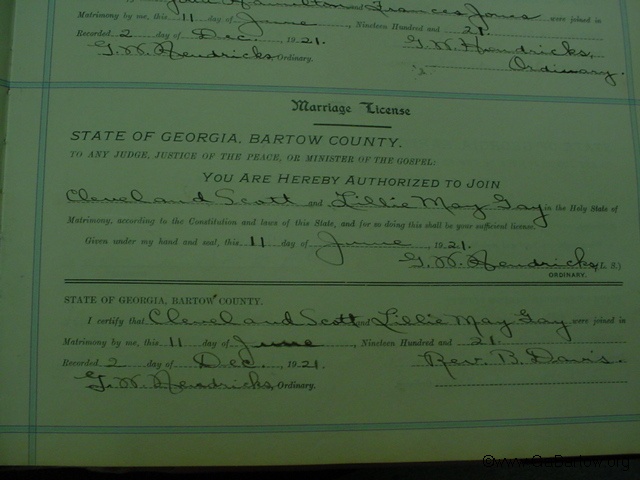 Hamilton & Frances Jones were joined in
Matrimony by me, this 11 day of June, Nineteen Hundred and 21.
Recorded 2 day of Dec. , 1921. G. W. Hendricks,
G. W. Hendricks Ordinary. Ordinary.
Marriage License
STATE OF GEORGIA, BARTOW COUNTY.
TO ANY JUDGE, JUSTICE OF THE PEACE, OR MINISTER OF THE GOSPEL:
YOU ARE HEREBY AUTHORIZED TO JOIN
Cleveland Scott and Lillie May Gay in the Holy State of
Matrimony, according to the Constitution and laws of this State, and for so doing this shall be your sufficient license.
Given under my hand and seal, this 11 day of June , 1921.
G. W. Hendricks (L. S.)
ORDINARY.
STATE OF GEORGIA, BARTOW COUNTY.
I certify that Cleveland Scott and Lillie May Gay were joined in
Matrimony by me, this 11 day of June , Nineteen Hundred and 21.
Recorded 2 day of Dec. , 1921. Rev. B. Davis.
G. W. Hendricks, Ordinary.
©www.GaBartow.org